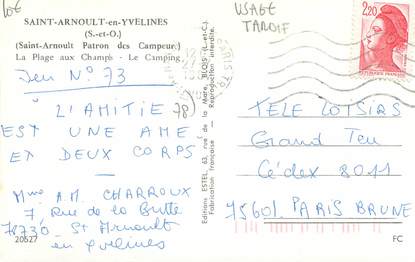 10€
USAGE
TARDIF
SAINT-ARNOULT-en-YVELINES
(S.-et-O.)
(Saint-Arnoult Patron des Campeurs)
La Plage aux Champs - Le Camping
Jeu N° 73
L'AMITIE 78)
EST UNE AME
ET DEUX CORPS
Mme A.M. CHARROUX
7, Rue de la Butte
78730 - St Arnoult
en Yvelines
20527
Editions ESTEL, 63, rue de la Mare, BLOIS (L.-et-C.)
Fabrication française - Reproduction interdite.
2,20
TELE LOISIRS
Grand Jeu
Cédex 8011
75601. PARIS BRUNE
FC